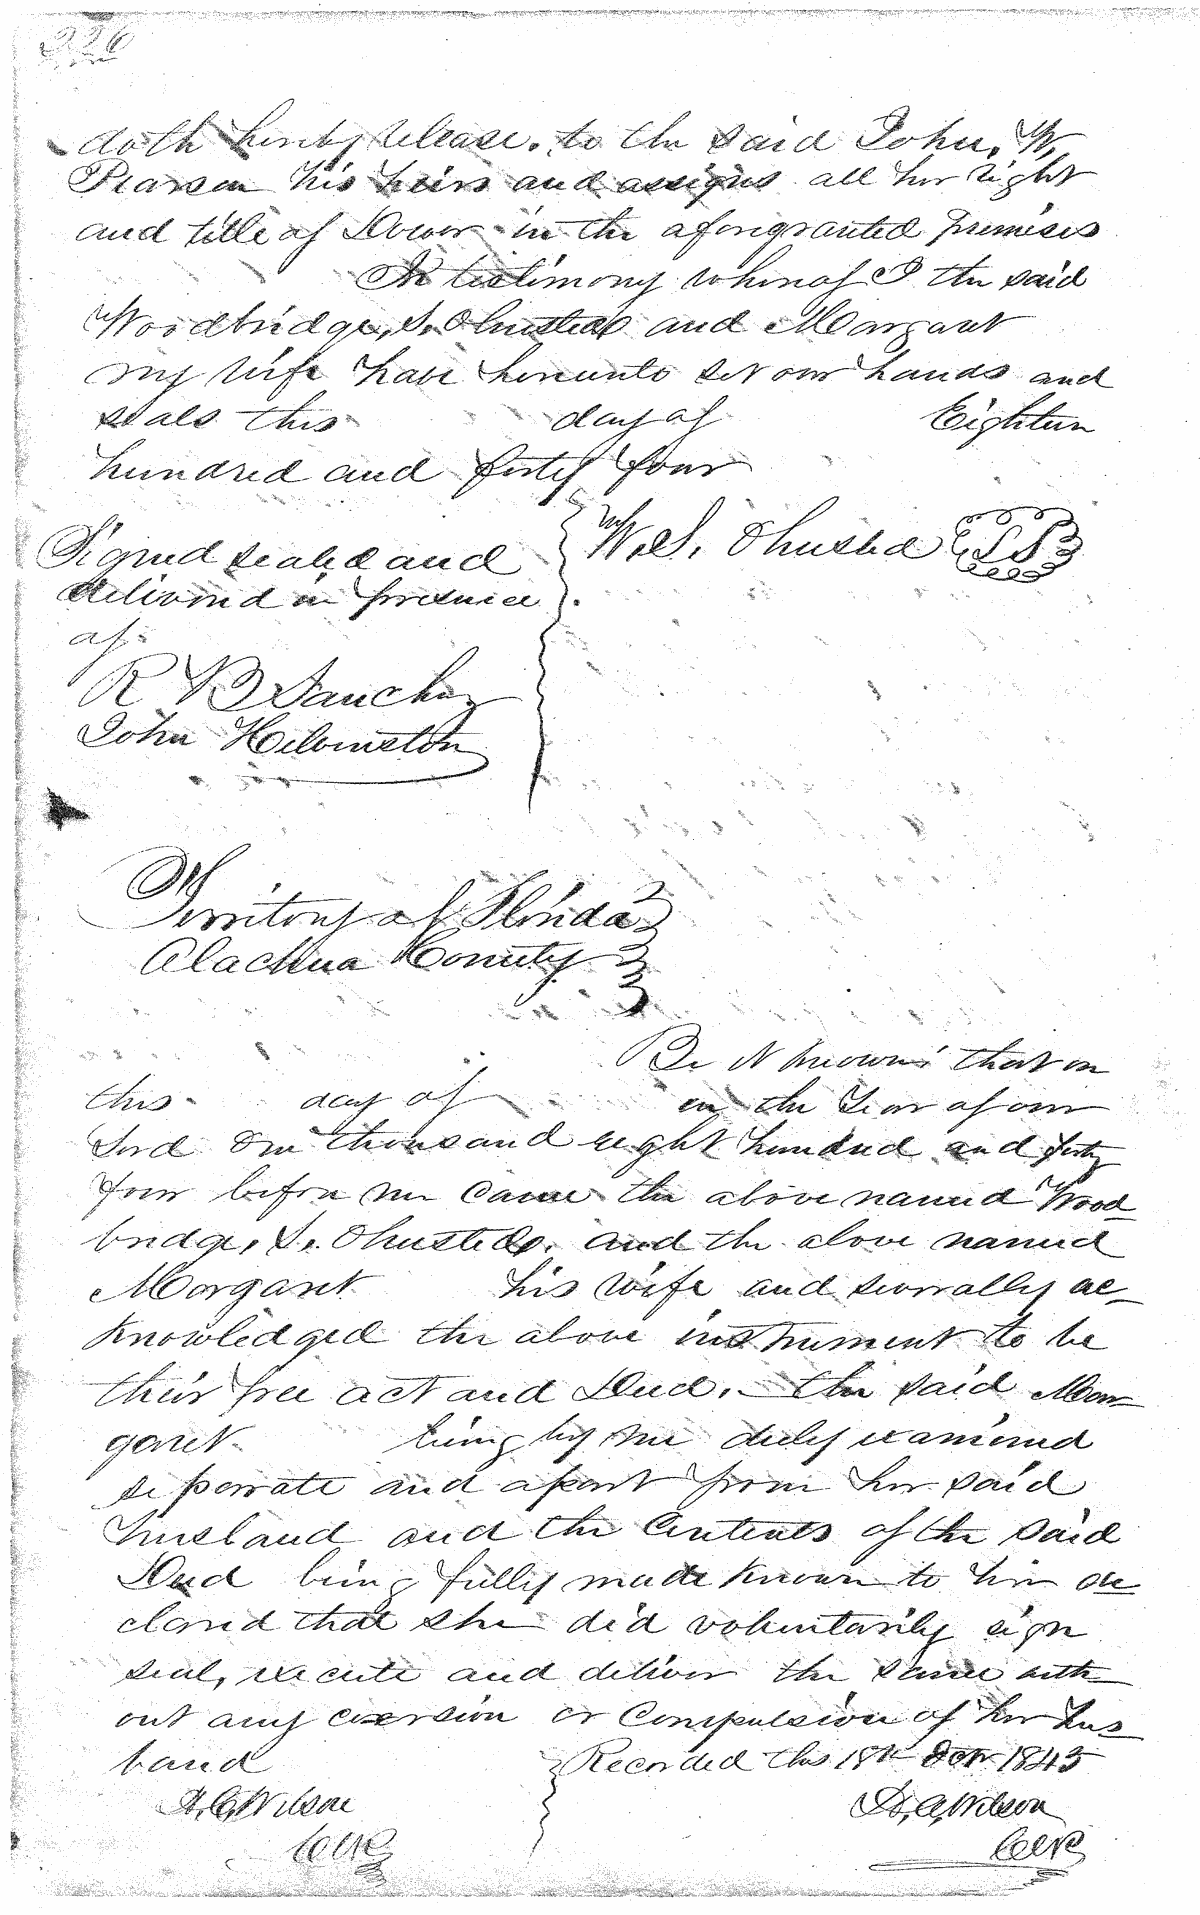 226
doth hereby release. to the said John. W.
Pearson his heirs and assigns all her right
and title of Dower in the aforegranted premises
In testimony whereof I the said
Woodbridge, S. Olmsted and Margaret
my wife have hereunto set our hands and
seals this day of Eighteen
hundred and forty four
Signed sealed and
delivered in presence
of
R B Sanchez
John
W. S. Olmsted LS
Territory of Florida
Alachua County
Be it known that on
this day of in the Year of our
Lord One thousand eight hundred and forty
four before me came the above named Wood-
bridge, S. Olmsted. and the above named
Margaret his wife and severally ac-
knowledged the above instrument to be
their free act and Deed. the said Mar-
garet being by me duly examined
seperrate and apart from her said
husband and the Contents of the said
Deed being fully made known to her de-
clared that she did voluntarily sign
seal, execute and deliver the same with-
out any coersion or Compulsion of her hus-
band
Recorded this 18th Octr 1845
Wilson
Clerk
Wilson
Clerk